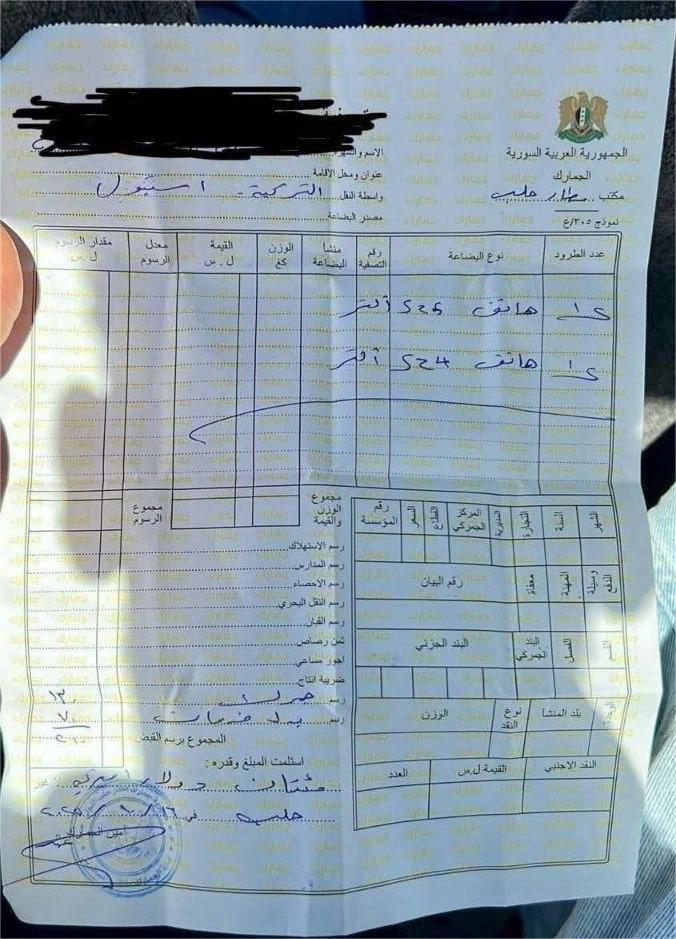 الجمهورية العربية السورية
الجمارك
مكتب مطار حلب
نموذج ٣٠٥/غ
الاسم والشهرة
عنوان ومحل الإقامة
واسطة النقل التركية - استنبول
مصدر البضاعة
عدد الطرود نوع البضاعة رقم التصفية منشأ البضاعة الوزن كغ القيمة ل.س معدل الرسوم مقدار الرسوم ل.س
هاتف S25 ألتر
هاتف S24 ألتر
مجموع الوزن والقيمة مجموع الرسوم
الشهر السنة التجارة المديرية المركز الجمركي القطاع السعر رقم المؤسسة
وسيلة الدفع المهنة معفاة رقم البيان
القسم الفصل البند الجمركي البند الجزئي
بلد المنشأ نوع النقد الوزن
النقد الاجنبي القيمة ل.س العدد
رسم الاستهلاك
رسم المدارس
رسم الاحصاء
رسم النقل البحري
رسم القبان
ثمن رصاص
اجور مساعي
ضريبة انتاج
رسم جمرك ١٣٠
رسم بدل خدمات ٧٠
المجموع برسم القبض ٢٠٠
استلمت المبلغ وقدره :
مئتان دولار لا غير
حلب في
أمين الجمارك